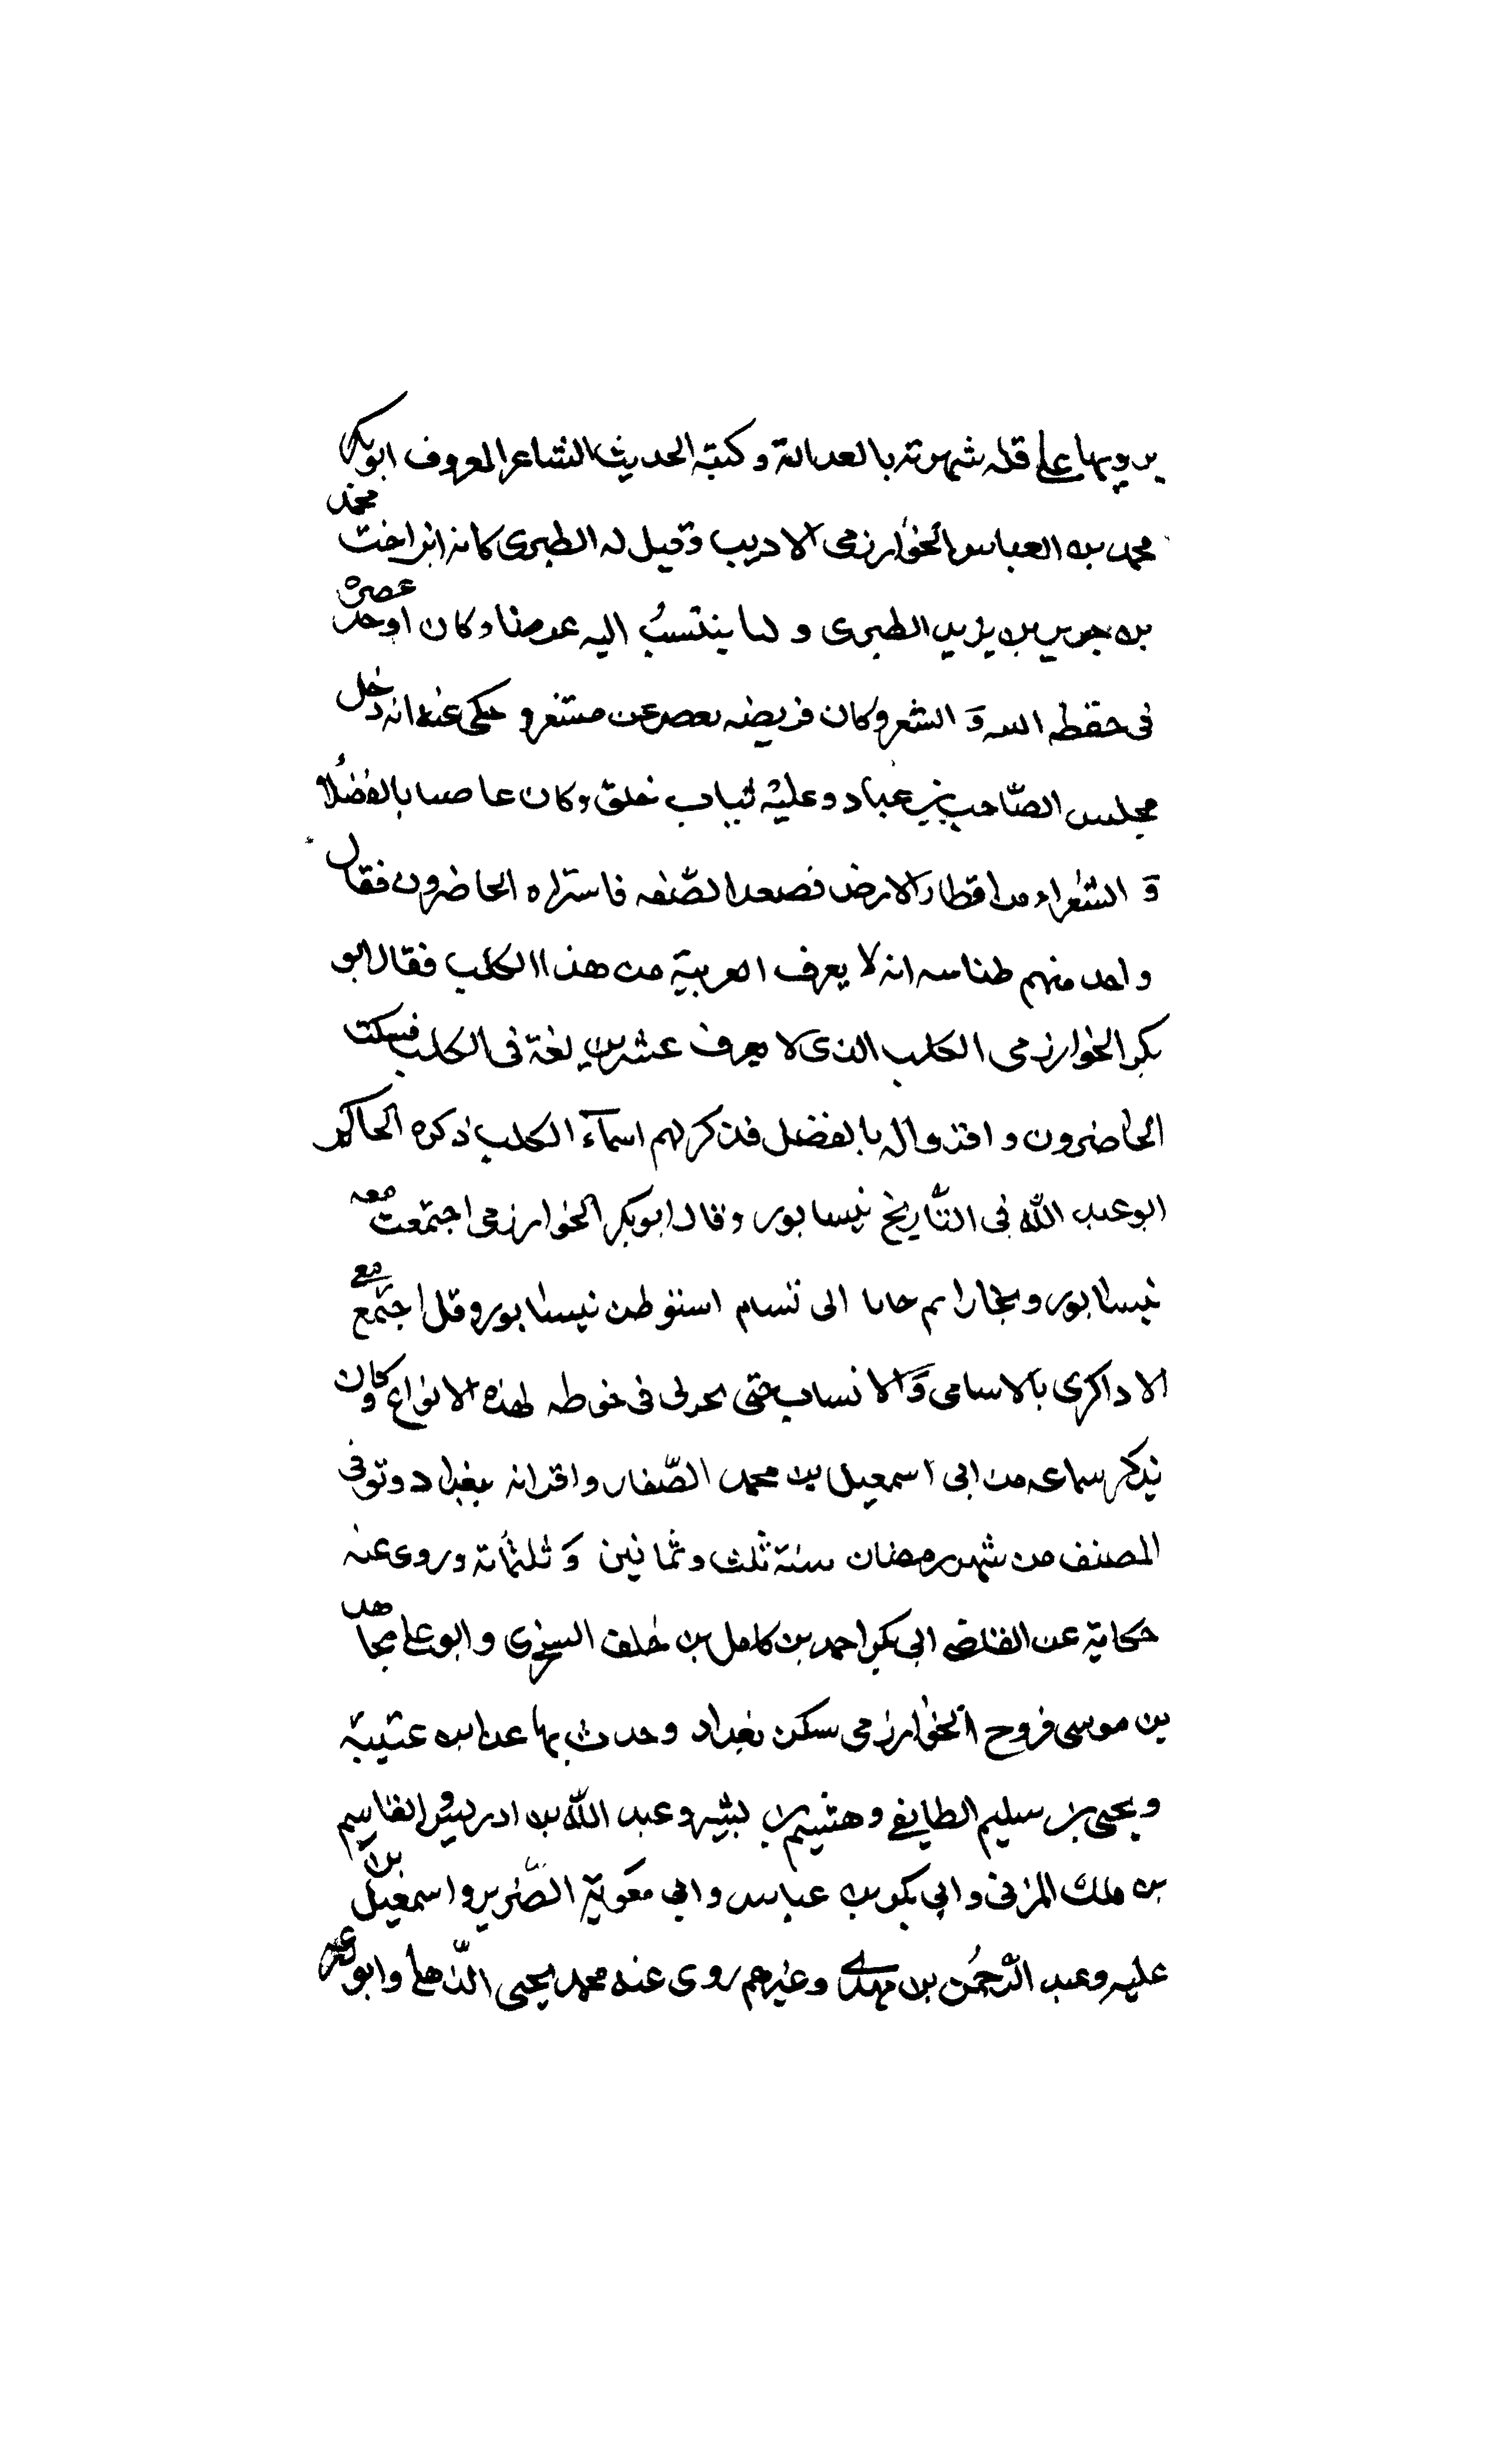 يرويها على قله شهرته بالعدالة و كتبة الحديث الشاعر المعروف ابو بكر
محمد بن العباس الخوارزمى الاديب وقيل له الطبرى كانه ابن اخت محمد
بن جرير بن يزيد الطبرى و لما ينتسب اليه عرضنا وكان اوحد عصره
فى حفظ اللغه وَ الشعر وكان و حكى عنه انه دخل
مجلس الصّاحب بن عباد وعليه ثياب خلق وكان بالفضلا
وَ الشعراء من اقطار الارض فصعد الصّفه فاستزراه الحاضرون فقال
واحد منهم انه لا يعرف العربية من هذا الكلب فقال ابو
بكر الخوارزمى الكلب الذى لا يعرف عشرين لغة فى الكلب فسكت
الحاضرون و بالفضل فذكر لهم اسمآء الكلب ذكره الحاكم
ابو عبد الله فى التّاريخ نيسابور وقال ابو بكر الخوارزمى اجتمعت معه
نيسابور وبخارا الى استوطن نيسابور اجتمع معى
الا ذاكرى بالاسامى وَالانساب حتى فى لهذه الانواع وكان
يذكر سماعه من ابى اسمعيل بن محمد الصّفار واقرانه ببغداد وتوفى
المصنف من شهر رمضان سنة ثلث وثمانين وَ ثلثمائة وروى عنه
حكاية عن القاضى ابى بكر احمد بن كامل بن خلف السجزى وابو على مجاهد
بن موسى فروخ الخوارزمى سكن بغداد وحدث بها عن ابن عتيبة
ويحيى بن سليم الطايفى وهشيم بن بشير وعبد الله بن ادريس والقاسم
بن ملك المزنى وابى بكر بن عباس وابى معوية الضّرير واسمعيل بن
عليه وعبد الرّحمن بن مهدى وغيرهم روى عنه محمد يحيى الذّهلى وابو